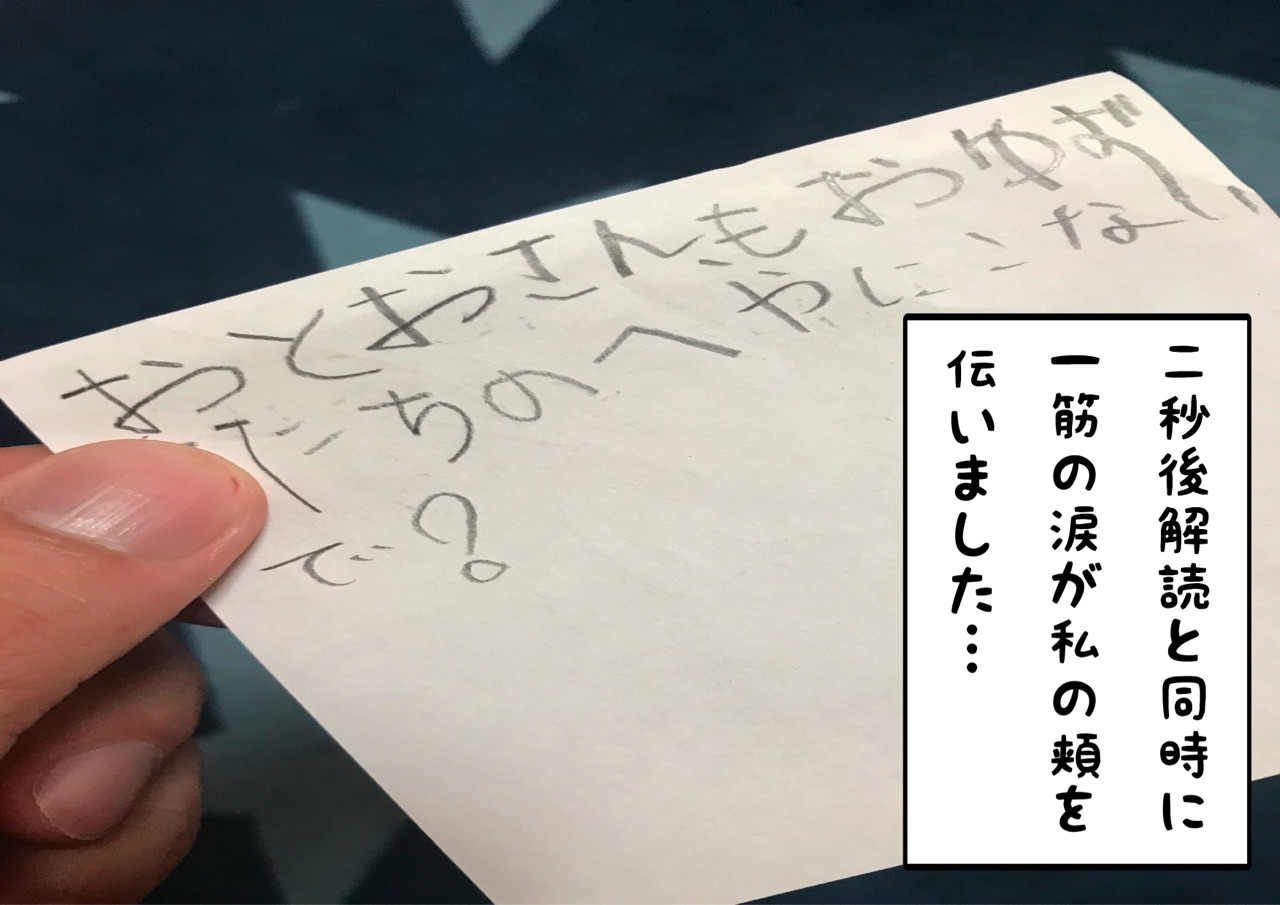 おとおさんもおゆず
だちのへやにこない
で？
二秒後解読と同時に
一筋の涙が私の頬を
伝いました…